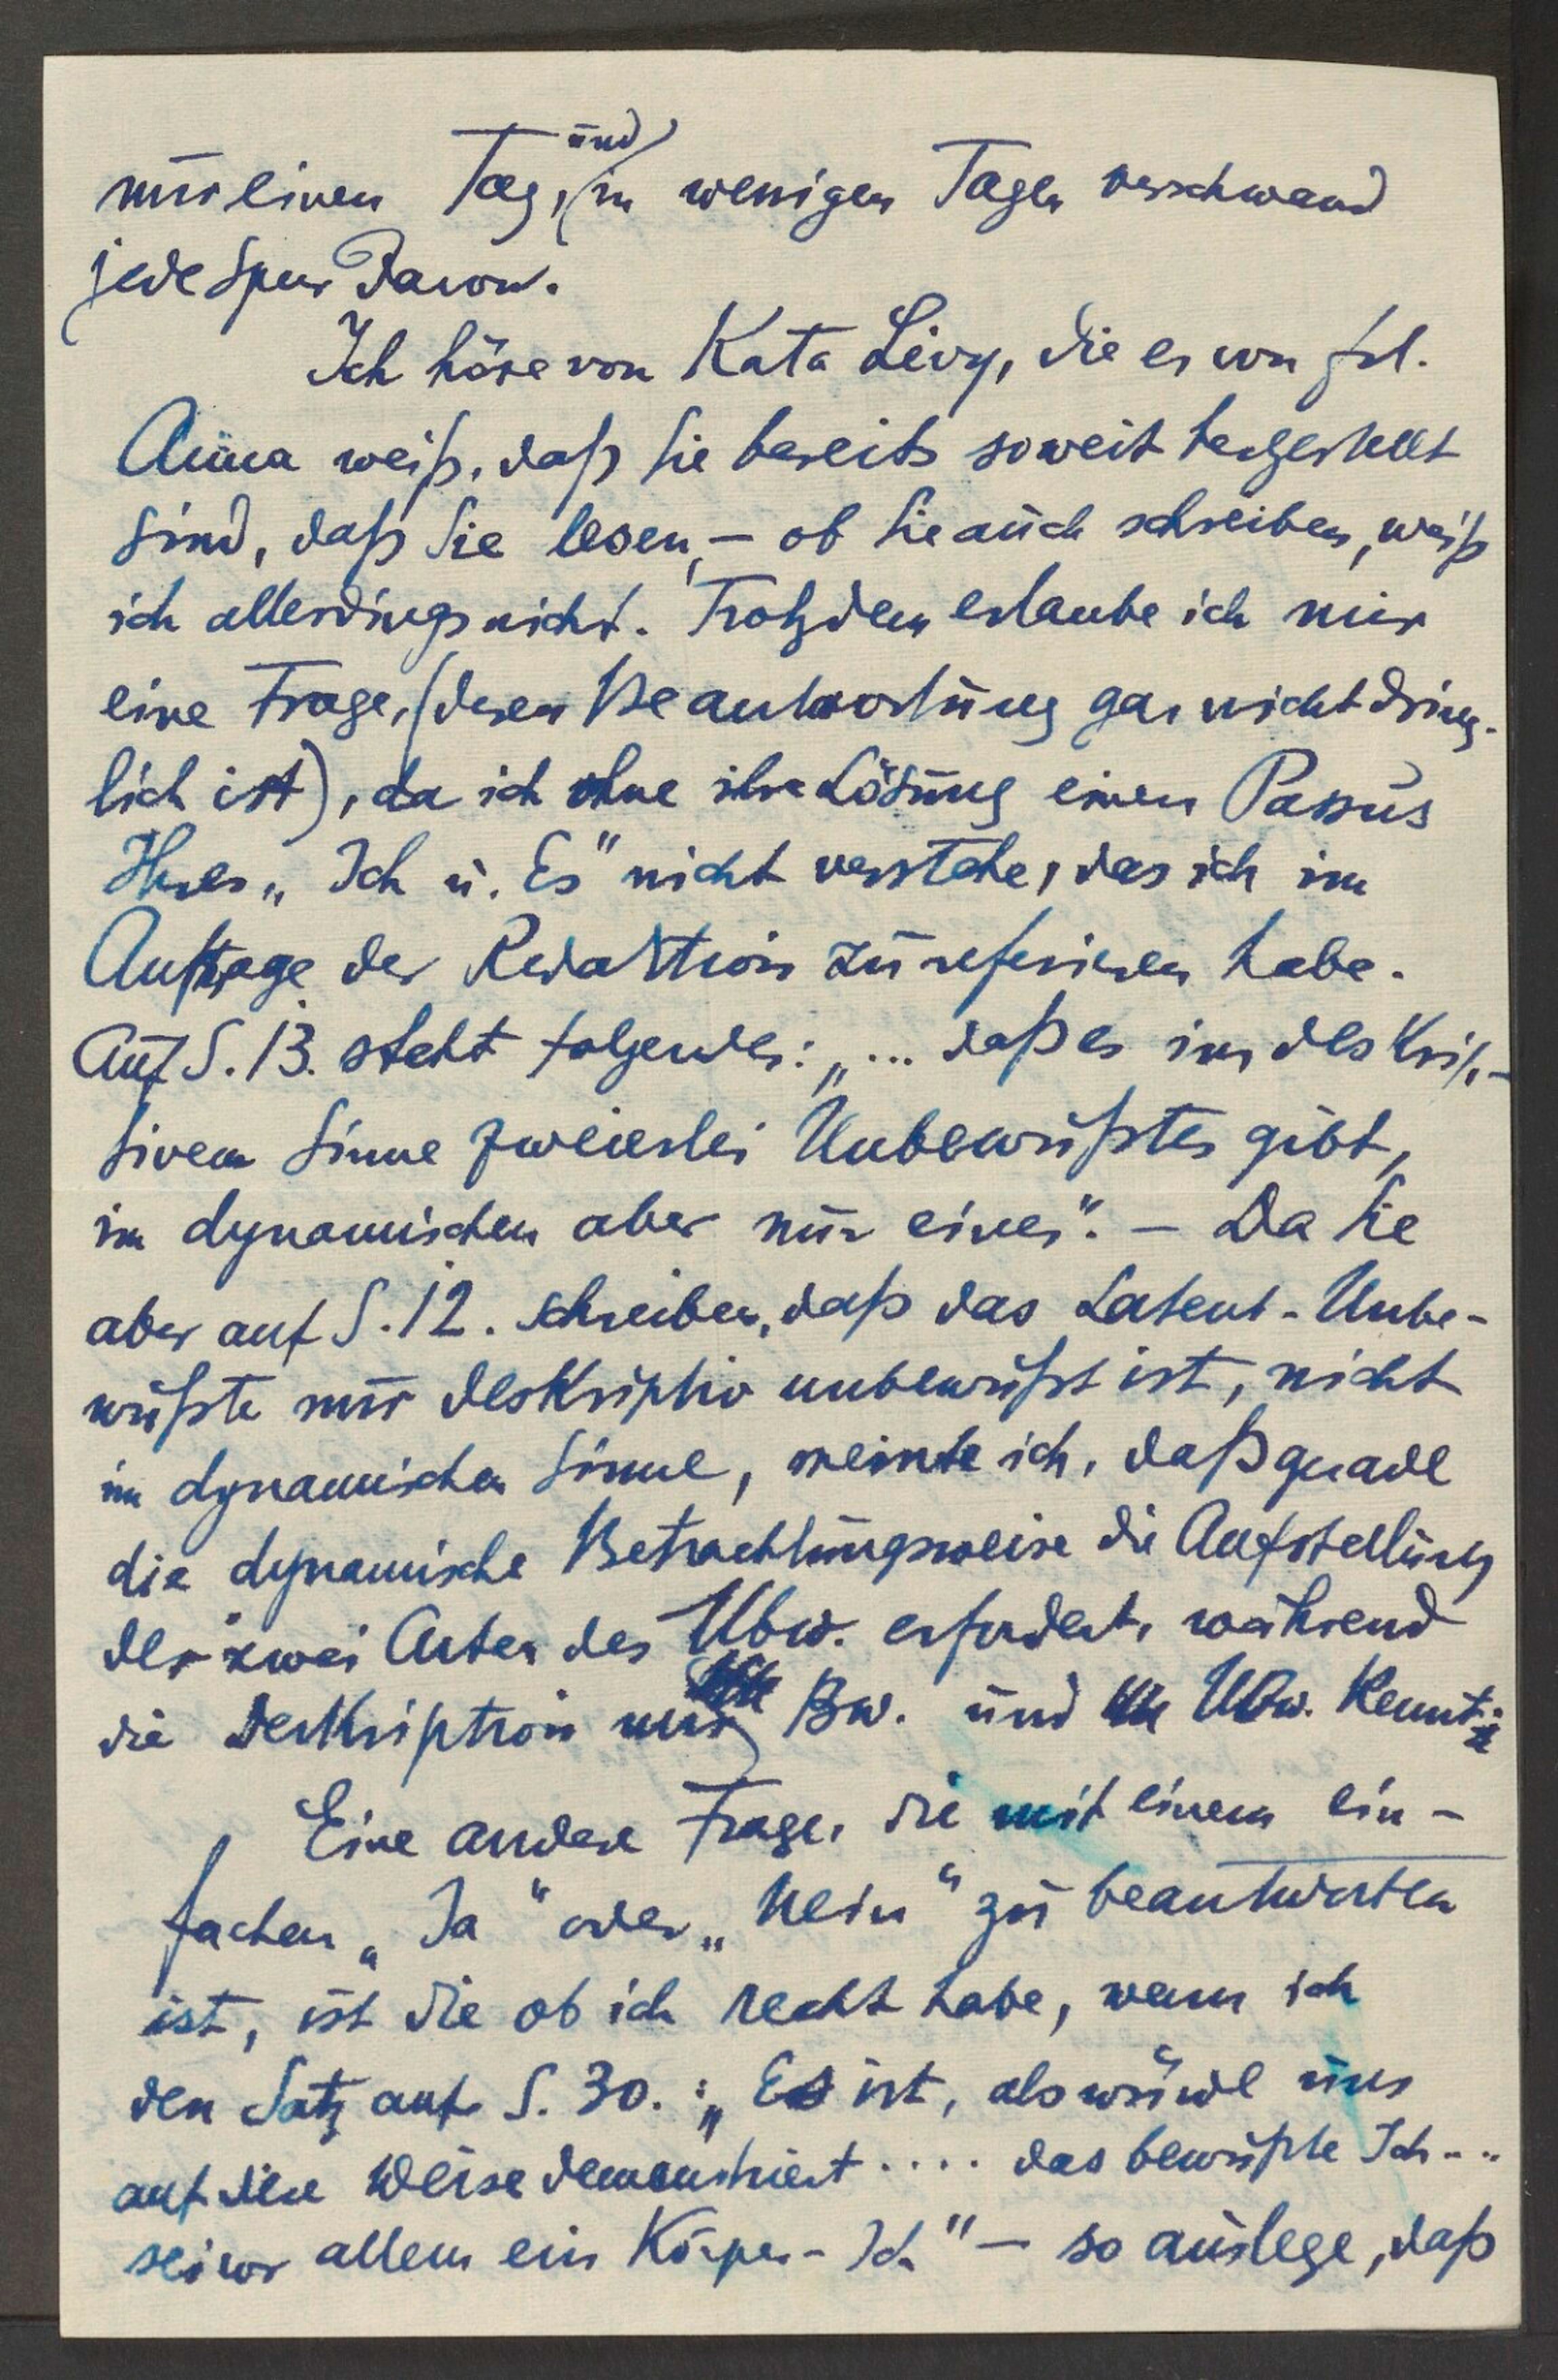 nur einen Tag, und in wenigen Tagen verschwand
jede Spur davon.
Ich höre von Kata Lévy, die es von Frl.
Anna weiß, daß Sie bereits soweit hergestellt
sind, daß Sie lesen, – ob Sie auch schreiben, weiß
ich allerdings nicht. Trotzdem erlaube ich mir
eine Frage, (deren Beantwortung gar nicht dring-
lich ist), da ich ohne ihre Lösung einen Passus
Ihres „Ich u. Es" nicht verstehe, das ich im
Auftrage der Redaktion zu referieren habe.
Auf S. 13. steht folgendes: „... daß es im deskrip-
tiven Sinne zweierlei Unbewußtes gibt,
im dynamischen aber nur eines". – Da Sie
aber auf S. 12. schreiben, daß das Latent-Unbe-
wußte nur deskriptiv unbewußt ist, nicht
im dynamischen Sinne, meinte ich, daß gerade
die dynamische Betrachtungsweise die Aufstellung
der zwei Arten des Ubw. erfordert, während
die Deskription nur Bw. und Ubw. kennt.
Eine andere Frage, die mit einem ein-
fachen „Ja" oder „Nein" zu beantworten
ist, ist die ob ich recht habe, wenn ich
den Satz auf S. 30.: „Es ist, als würde uns
auf diese Weise demonstriert .... das bewußte Ich...
sei vor allem ein Körper-Ich" – so auslege, daß